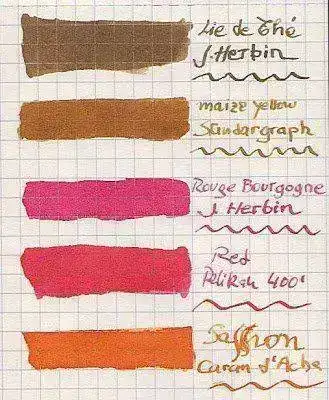 Lie de Thé
J. Herbin
maize yellow
Standargraph
Rouge Bourgogne
J Herbin
Red
Pelikan 4001
Saffron
Caran d'Ache